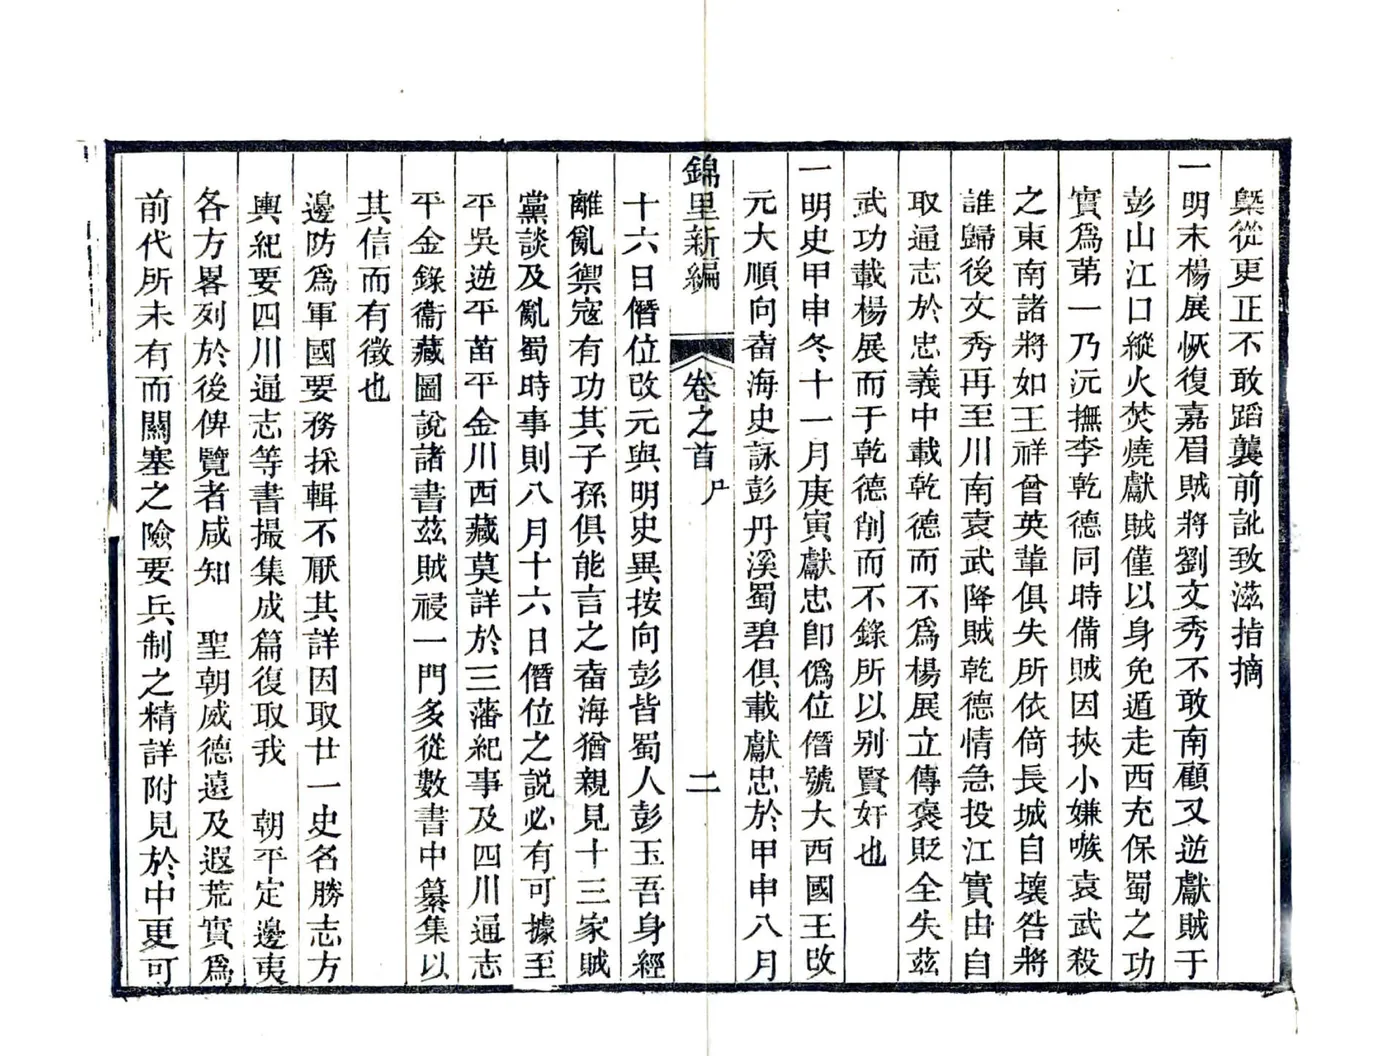 槩從更正不敢蹈襲前訛致滋指摘
一明末楊展恢復嘉眉賊將劉文秀不敢南顧又逆獻賊于
彭山江口縱火焚燒獻賊僅以身免遁走西充保蜀之功
實爲第一乃沅撫李乾德同時備賊因挾小嫌嗾袁武殺
之東南諸將如王祥曾英輩俱失所依倚長城自壞咎將
誰歸後文秀再至川南袁武降賊乾德情急投江實由自
取通志於忠義中載乾德而不爲楊展立傳褒貶全失兹
武功載楊展而于乾德削而不錄所以别賢奸也
一明史甲申冬十一月庚寅獻忠卽僞位僭號大西國王改
元大順向畬海史詠彭丹溪蜀碧俱載獻忠於甲申八月
錦里新編
卷之首
二
十六日僭位改元與明史異按向彭皆蜀人彭玉吾身經
離亂禦寇有功其子孫俱能言之畬海猶親見十三家賊
黨談及亂蜀時事則八月十六日僭位之說必有可據至
平吳逆平苗平金川西藏莫詳於三藩紀事及四川通志
平金錄衞藏圖說諸書兹賊祲一門多從數書中纂集以
其信而有徵也
邊防爲軍國要務採輯不厭其詳因取廿一史名勝志方
輿紀要四川通志等書撮集成篇復取我　朝平定邊夷
各方畧列於後俾覽者咸知　聖朝威德遠及遐荒實爲
前代所未有而關塞之險要兵制之精詳附見於中更可